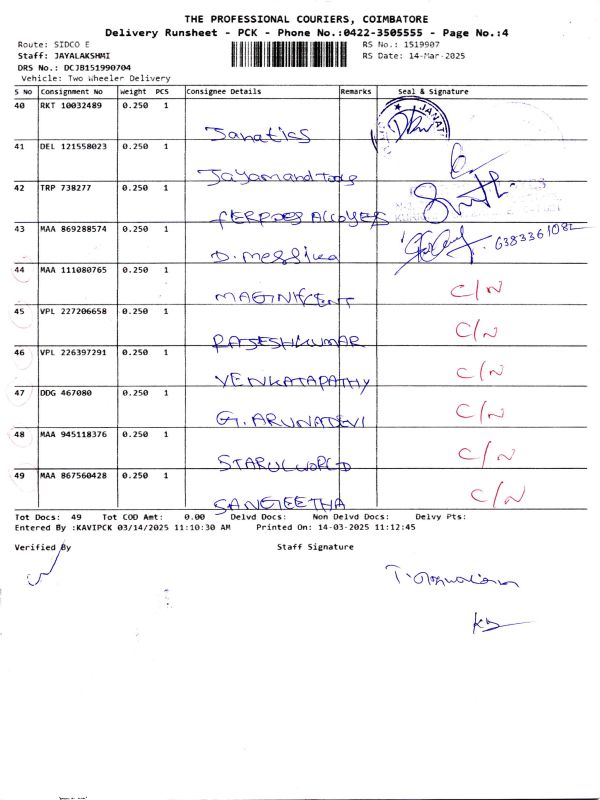 THE PROFESSIONAL COURIERS, COIMBATORE
Delivery Runsheet - PCK - Phone No.:0422-3505555 - Page No.:4
Route: SIDCO E RS No.: 1519907
Staff: JAYALAKSHMI RS Date: 14-Mar-2025
DRS No.: DCJB151990704
Vehicle: Two Wheeler Delivery
S No Consignment No Weight PCS Consignee Details Remarks Seal & Signature
40 RKT 10032489 0.250 1
Janatics
41 DEL 121558023 0.250 1
Jayamand Tools
42 TRP 738277 0.250 1
43 MAA 869288574 0.250 1
6383361082
D. Messiva
44 MAA 111080765 0.250 1
MAGINIFCENT C/N
45 VPL 227206658 0.250 1
RAJESHKUMAR C/N
46 VPL 226397291 0.250 1
VENKATAPATHY C/N
47 DDG 467080 0.250 1
G. ARUNADEVI C/N
48 MAA 945118376 0.250 1
STARULWORLD C/N
49 MAA 867560428 0.250 1
SANGEETHA C/N
Tot Docs: 49 Tot COD Amt: 0.00 Delvd Docs: Non Delvd Docs: Delvy Pts:
Entered By :KAVIPCK 03/14/2025 11:10:30 AM Printed On: 14-03-2025 11:12:45
Verified By Staff Signature